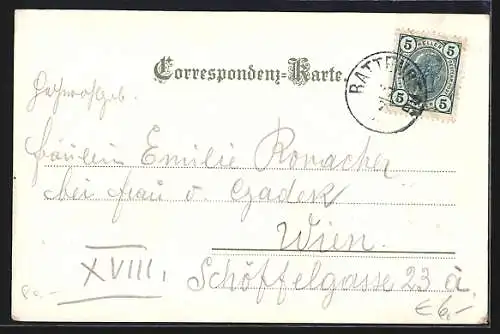 Correspondenz-Karte
5 HELLER 5
5 5
RATTENBERG
Hochwohlgeb.
Fräulein Emilie Ronacher
bei Frau v. Gadek
Wien.
XVIII,
Schöffelgasse 23 a
€ 6,-